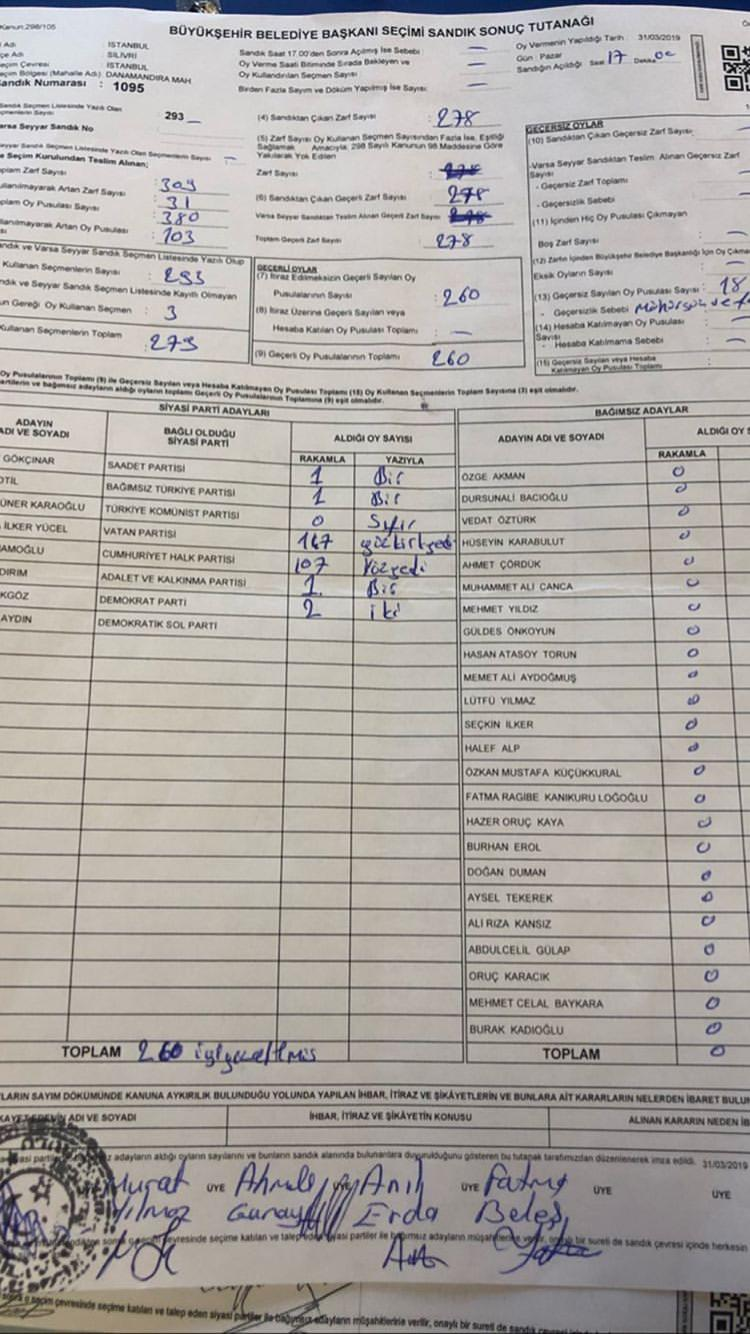 Kanun:298/105
BÜYÜKŞEHİR BELEDİYE BAŞKANI SEÇİMİ SANDIK SONUÇ TUTANAĞI
Adı : İSTANBUL
Adı : SİLİVRİ
Çevresi : İSTANBUL
Bölgesi (Mahalle Adı) : DANAMANDIRA MAH.
Sandık Numarası : 1095
Sandık Saat 17.00'den Sonra Açılmış İse Sebebi : —
Oy Verme Saati Bitiminde Sırada Bekleyen ve
Oy Kullandırılan Seçmen Sayısı : —
Birden Fazla Sayım ve Döküm Yapılmış İse Sayısı : —
Oy Vermenin Yapıldığı Tarih : 31/03/2019
Gün : Pazar
Sandığın Açıldığı Saat 17 Dakika 00
Sandık Seçmen Listesinde Yazılı Olan
Seçmenlerin Sayısı : 293
Varsa Seyyar Sandık No
Seyyar Sandık Seçmen Listesinde Yazılı Olan Seçmenlerin Sayısı : —
Seçim Kurulundan Teslim Alınan;
Toplam Zarf Sayısı : 309
Kullanılmayarak Artan Zarf Sayısı : 31
Toplam Oy Pusulası Sayısı : 380
Kullanılmayarak Artan Oy Pusulası : 103
Sandık ve Varsa Seyyar Sandık Seçmen Listesinde Yazılı Olup
Kullanan Seçmenlerin Sayısı :
Sandık ve Seyyar Sandık Seçmen Listesinde Kayıtlı Olmayan
Gereği Oy Kullanan Seçmen : 3
Kullanan Seçmenlerin Toplam :
(4) Sandıktan Çıkan Zarf Sayısı : 278
(5) Zarf Sayısı Oy Kullanan Seçmen Sayısından Fazla İse, Eşitliği
Sağlamak Amacıyla; 298 Sayılı Kanunun 98 Maddesine Göre
Yakılarak Yok Edilen
Zarf Sayısı :
(6) Sandıktan Çıkan Geçerli Zarf Sayısı : 278
Varsa Seyyar Sandıktan Teslim Alınan Geçerli Zarf Sayısı :
Toplam Geçerli Zarf Sayısı : 278
GEÇERLİ OYLAR
(7) İtiraz Edilmeksizin Geçerli Sayılan Oy
Pusulalarının Sayısı : 260
(8) İtiraz Üzerine Geçerli Sayılan veya
Hesaba Katılan Oy Pusulası Toplamı : —
(9) Geçerli Oy Pusulalarının Toplamı : 260
GEÇERSİZ OYLAR
(10) Sandıktan Çıkan Geçersiz Zarf Sayısı : —
-Varsa Seyyar Sandıktan Teslim Alınan Geçersiz Zarf
Sayısı
- Geçersiz Zarf Toplamı : —
- Geçersizlik Sebebi : —
(11) İçinden Hiç Oy Pusulası Çıkmayan
Boş Zarf Sayısı : —
(12) Zarfın İçinden Büyükşehir Belediye Başkanlığı İçin Oy
Eksik Oyların Sayısı : —
(13) Geçersiz Sayılan Oy Pusulası Sayısı : 18
- Geçersizlik Sebebi
(14) Hesaba Katılmayan Oy Pusulası
Sayısı : —
- Hesaba Katılmama Sebebi : —
(15) Geçersiz Sayılan veya Hesaba
Katılmayan Oy Pusulası Toplamı : —
Oy Pusulalarının Toplamı (9) ile Geçersiz Sayılan veya Hesaba Katılmayan Oy Pusulası Toplamı (15) Oy Kullanan Seçmenlerin Toplam Sayısına (3) eşit olmalıdır.
partilerin ve bağımsız adayların aldığı oyların toplamı Geçerli Oy Pusulalarının Toplamına (9) eşit olmalıdır.
SİYASİ PARTİ ADAYLARI
ADAYIN
ADI VE SOYADI
BAĞLI OLDUĞU
SİYASİ PARTİ
ALDIĞI OY SAYISI
RAKAMLA YAZIYLA
GÖKÇINAR SAADET PARTİSİ 1 Bir
BAĞIMSIZ TÜRKİYE PARTİSİ 1 Bir
KARAOĞLU TÜRKİYE KOMÜNİST PARTİSİ 0 Sıfır
İLKER YÜCEL VATAN PARTİSİ
CUMHURİYET HALK PARTİSİ 107 Yüzyedi
ADALET VE KALKINMA PARTİSİ 1 Bir
DEMOKRAT PARTİ 2 iki
AYDIN DEMOKRATİK SOL PARTİ
TOPLAM 260
BAĞIMSIZ ADAYLAR
ADAYIN ADI VE SOYADI
ALDIĞI OY
RAKAMLA
ÖZGE AKMAN 0
DURSUNALİ BACIOĞLU 0
VEDAT ÖZTÜRK 0
HÜSEYİN KARABULUT 0
AHMET ÇÖRDÜK 0
MUHAMMET ALİ CANCA 0
MEHMET YILDIZ 0
GÜLDES ÖNKOYUN 0
HASAN ATASOY TORUN 0
MEMET ALİ AYDOĞMUŞ 0
LÜTFÜ YILMAZ 0
SEÇKİN İLKER 0
HALEF ALP 0
ÖZKAN MUSTAFA KÜÇÜKKURAL 0
FATMA RAGİBE KANIKURU LOĞOĞLU 0
HAZER ORUÇ KAYA 0
BURHAN EROL 0
DOĞAN DUMAN 0
AYSEL TEKEREK 0
ALİ RIZA KANSIZ 0
ABDULCELİL GÜLAP 0
ORUÇ KARACIK 0
MEHMET CELAL BAYKARA 0
BURAK KADIOĞLU 0
TOPLAM 0
SAYIM DÖKÜMÜNDE KANUNA AYKIRILIK BULUNDUĞU YOLUNDA YAPILAN İHBAR, İTİRAZ VE ŞİKAYETLERİN VE BUNLARA AİT KARARLARIN NELERDEN İBARET
ADI VE SOYADI
İHBAR, İTİRAZ VE ŞİKAYETİN KONUSU
ALINAN KARARIN NEDEN
adayların aldığı oyların sayılarını ve bunların sandık alanında bulunanlara duyurulduğunu gösteren bu tutanak tarafımızdan düzenlenerek imza edildi. 31/03/2019
Murat ÜYE ÜYE Anıl ÜYE Fatma ÜYE ÜYE
Yılmaz Erda Beleş
çevresinde seçime katılan ve talep eden siyasi partiler ile bağımsız adayların müşahitlerine verilir, onaylı bir sureti de sandık çevresi içinde herkesin
o seçim çevresinde seçime katılan ve talep eden siyasi partiler ile bağımsız adayların müşahitlerine verilir, onaylı bir sureti de sandık